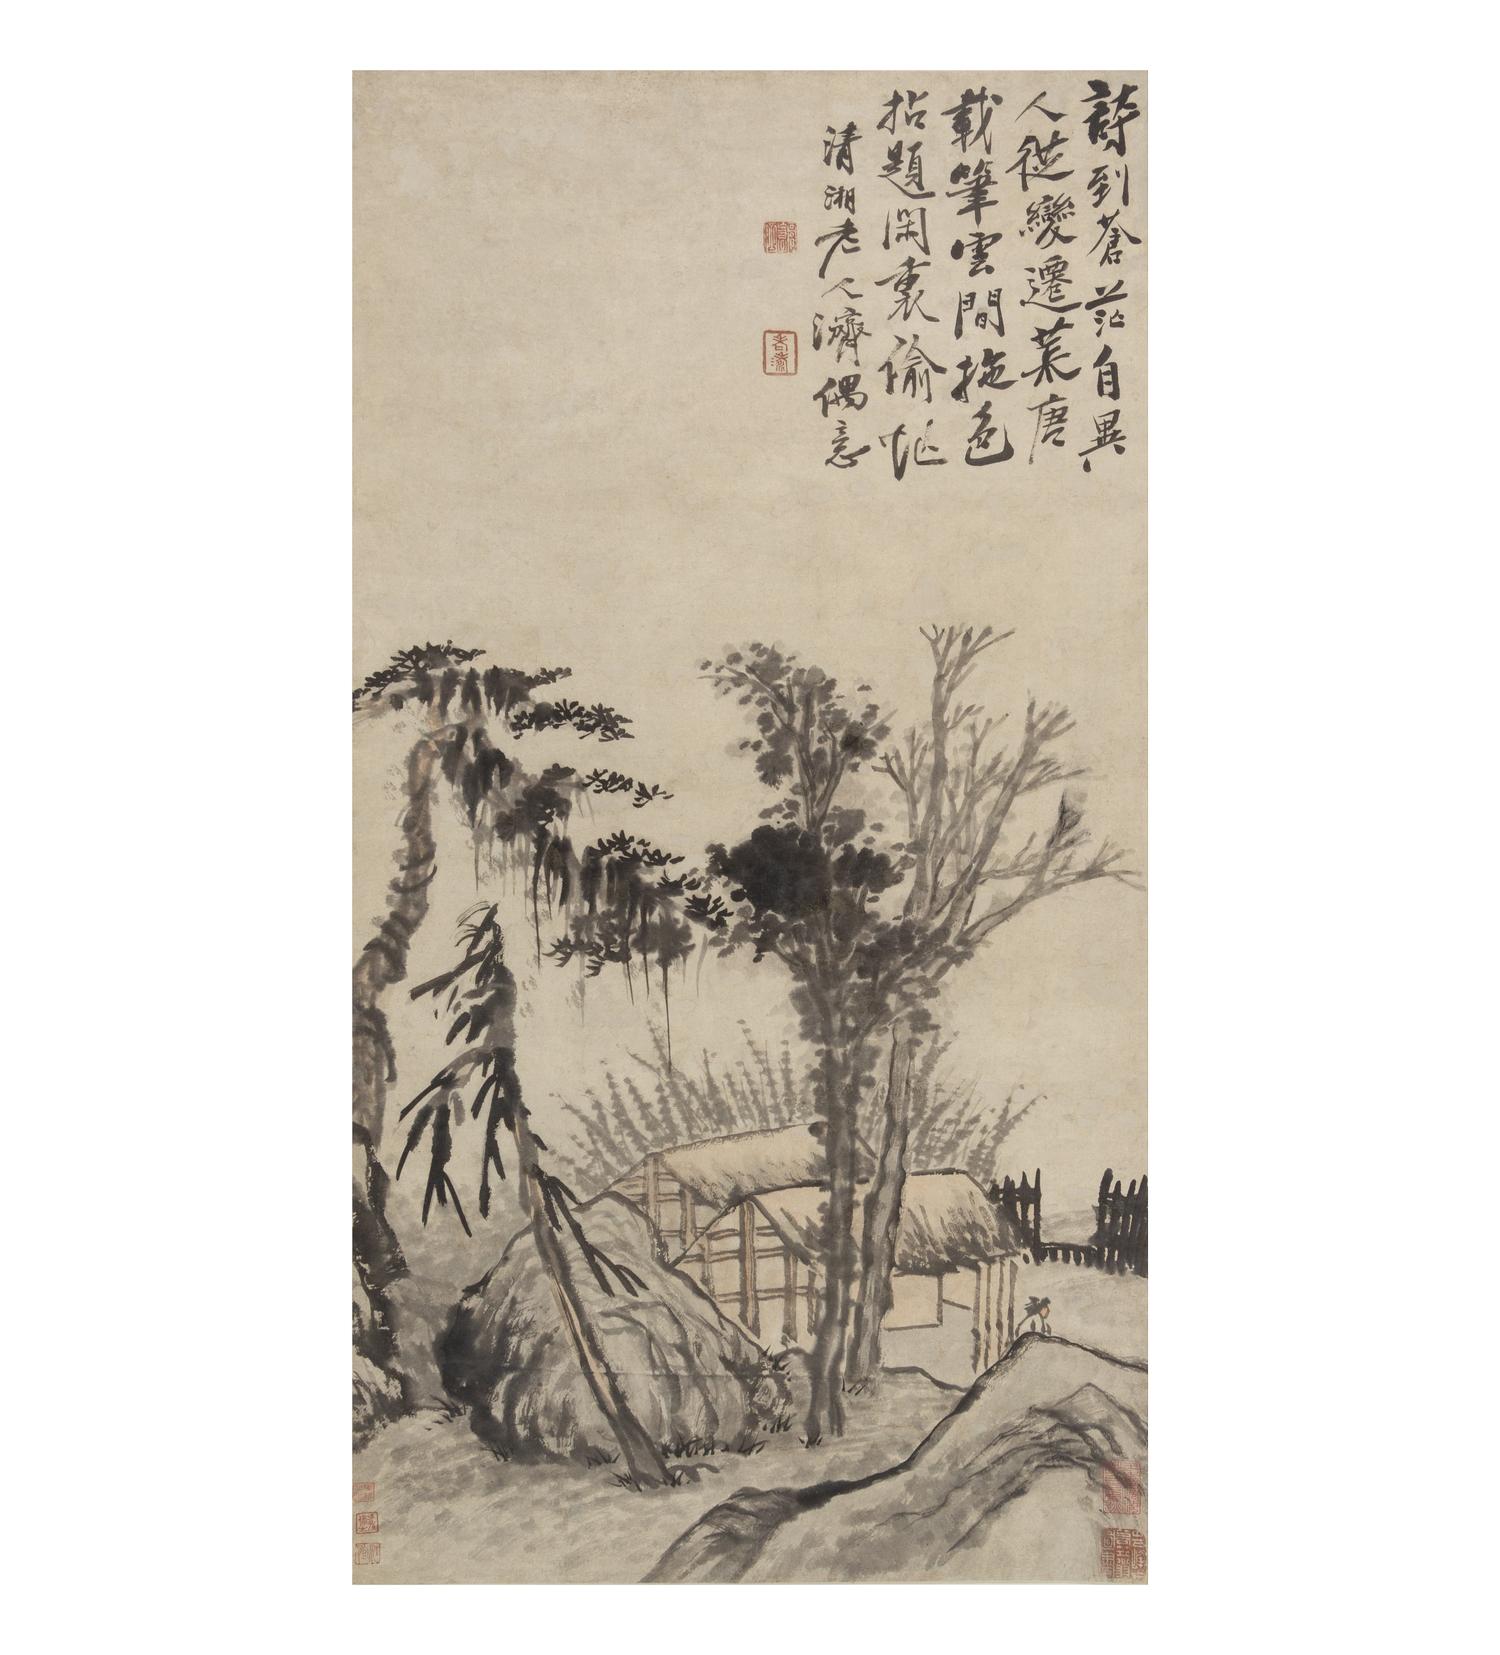 詩到蒼茫自異
人從變遷荒唐
載筆雲間拖色
拈題閑裏偷忙
清湘老人濟偶意